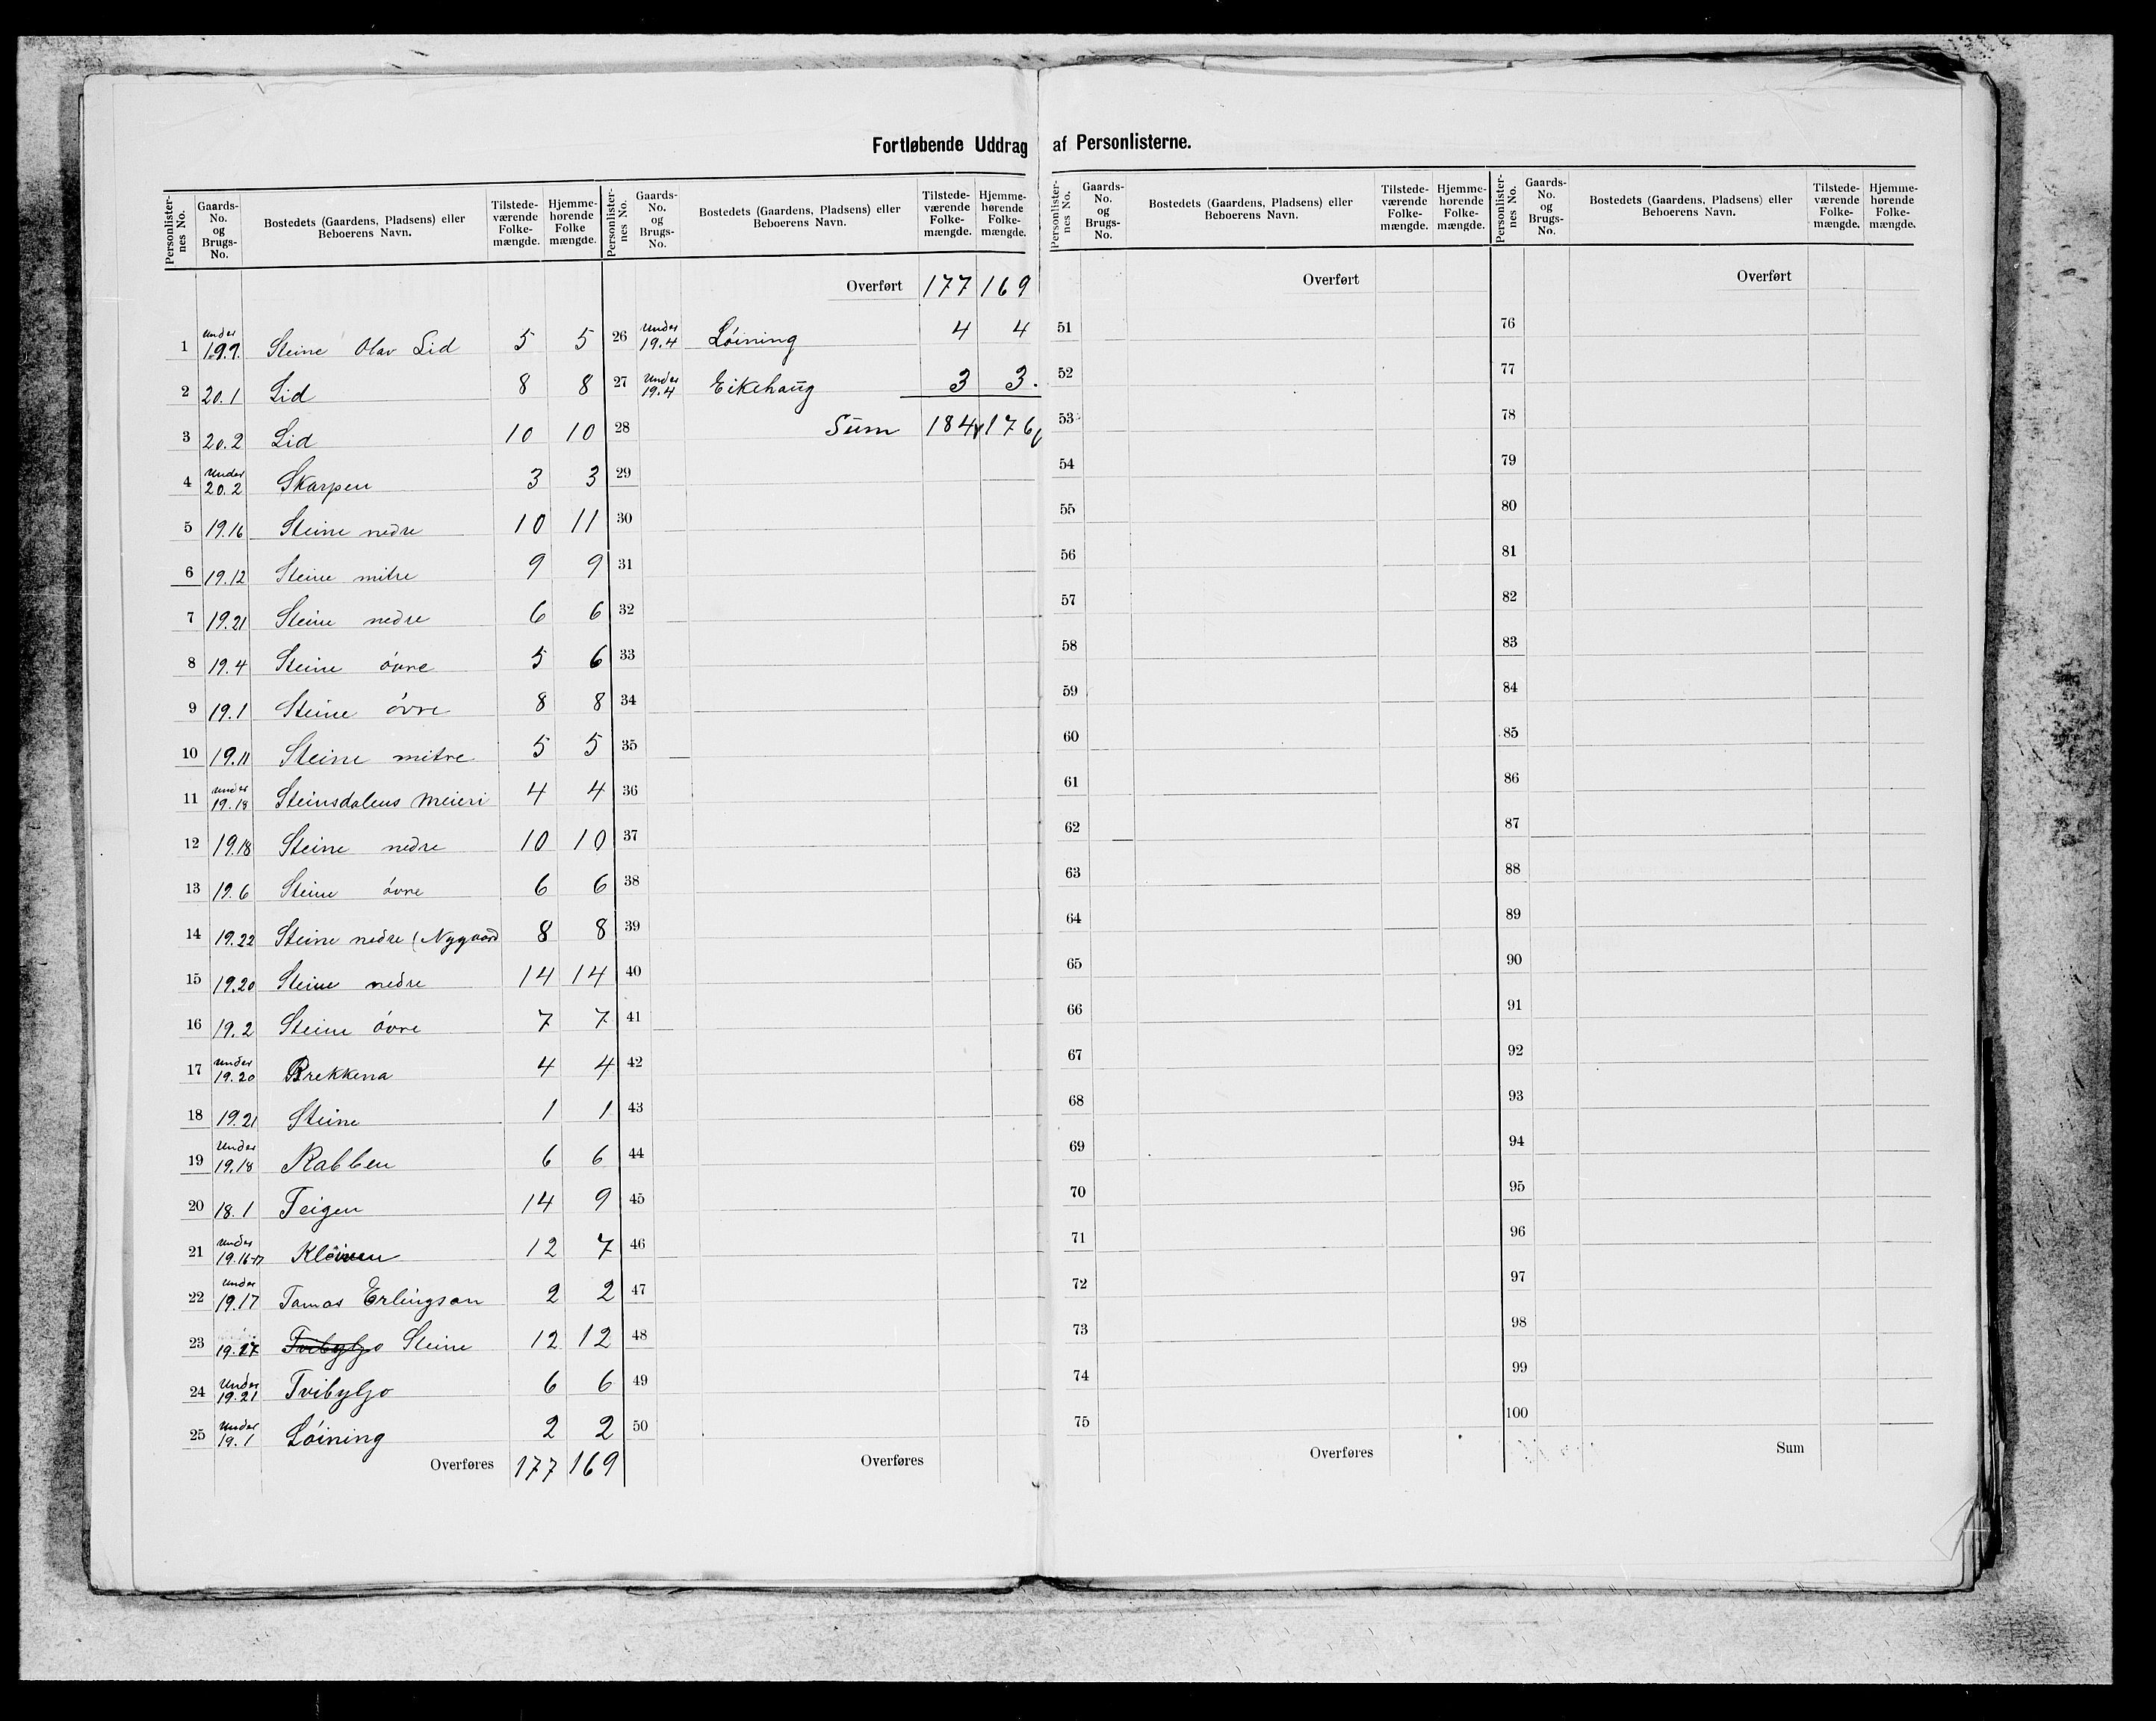 Fortløbende Uddrag af Personlisterne.
Personlisternes No. Gaards-No. og Brugs-No. Bostedets (Gaardens, Pladsens) eller Beboerens Navn. Tilstedeværende Folkemængde. Hjemmehørende Folke mængde.
1 Under 19.9. Steine Olav Lid 5 5
2 20.1 Lid 8 8
3 20.2 Lid 10 10
4 Under 20.2 Skarpen 3 3
5 19.16 Steine nedre 10 11
6 19.12 Steine mitre 9 9
7 19.21 Steine nedre 6 6
8 19.4 Steine óvre 5 6
9 19.1 Steine óvre 8 8
10 19.11 Steine mitre 5 5
11 under 19.18 Steinsdalens meieri 4 4
12 19.18 Steine nedre 10 10
13 19.6 Steine óvre 6 6
14 19.22 Steine nedre (Nygaard 8 8
15 19.20 Steine nedre 14 14
16 19.2 Steine óvre 7 7
17 Under 19.20 Brekkena 4 4
18 19.21 Steine 1 1
19 Under 19.18 Rabben 6 6
20 18.1 Teigen 14 9
21 Under 19.16-17 Klöiven 12 7
22 Under 19.17 Tomas Erlingson 2 2
23 19.17 Steine 12 12
24 Under 19.21 Tvibyljo 6 6
25 Under 19.1 Lóining 2 2
Overføres 177 169
Personlisternes No. Gaards-No. og Brugs-No. Bostedets (Gaardens, Pladsens) eller Beboerens Navn. Tilstedeværende Folkemængde. Hjemmehørende Folkemængde.
Overført 177 169
26 Under 19.4 Lóining 4 4
27 Under 19.4 Eikehaug 3 3.
28 Sum 184 176
29
30
31
32
33
34
35
36
37
38
39
40
41
42
43
44
45
46
47
48
49
50
Overføres
Personlisternes No. Gaards-No. og Brugs-No. Bostedets (Gaardens, Pladsens) eller Beboerens Navn. Tilstedeværende Folkemængde. Hjemmehørende Folkemængde.
Overført
51
52
53
54
55
56
57
58
59
60
61
62
63
64
65
66
67
68
69
70
71
72
73
74
75
Overføres
Personlisternes No. Gaards-No. og Brugs-No. Bostedets (Gaardens, Pladsens) eller Beboerens Navn. Tilstedeværende Folkemængde. Hjemmehørende Folkemængde.
Overført
76
77
78
79
80
81
82
83
84
85
86
87
88
89
90
91
92
93
94
95
96
97
98
99
100
Sum